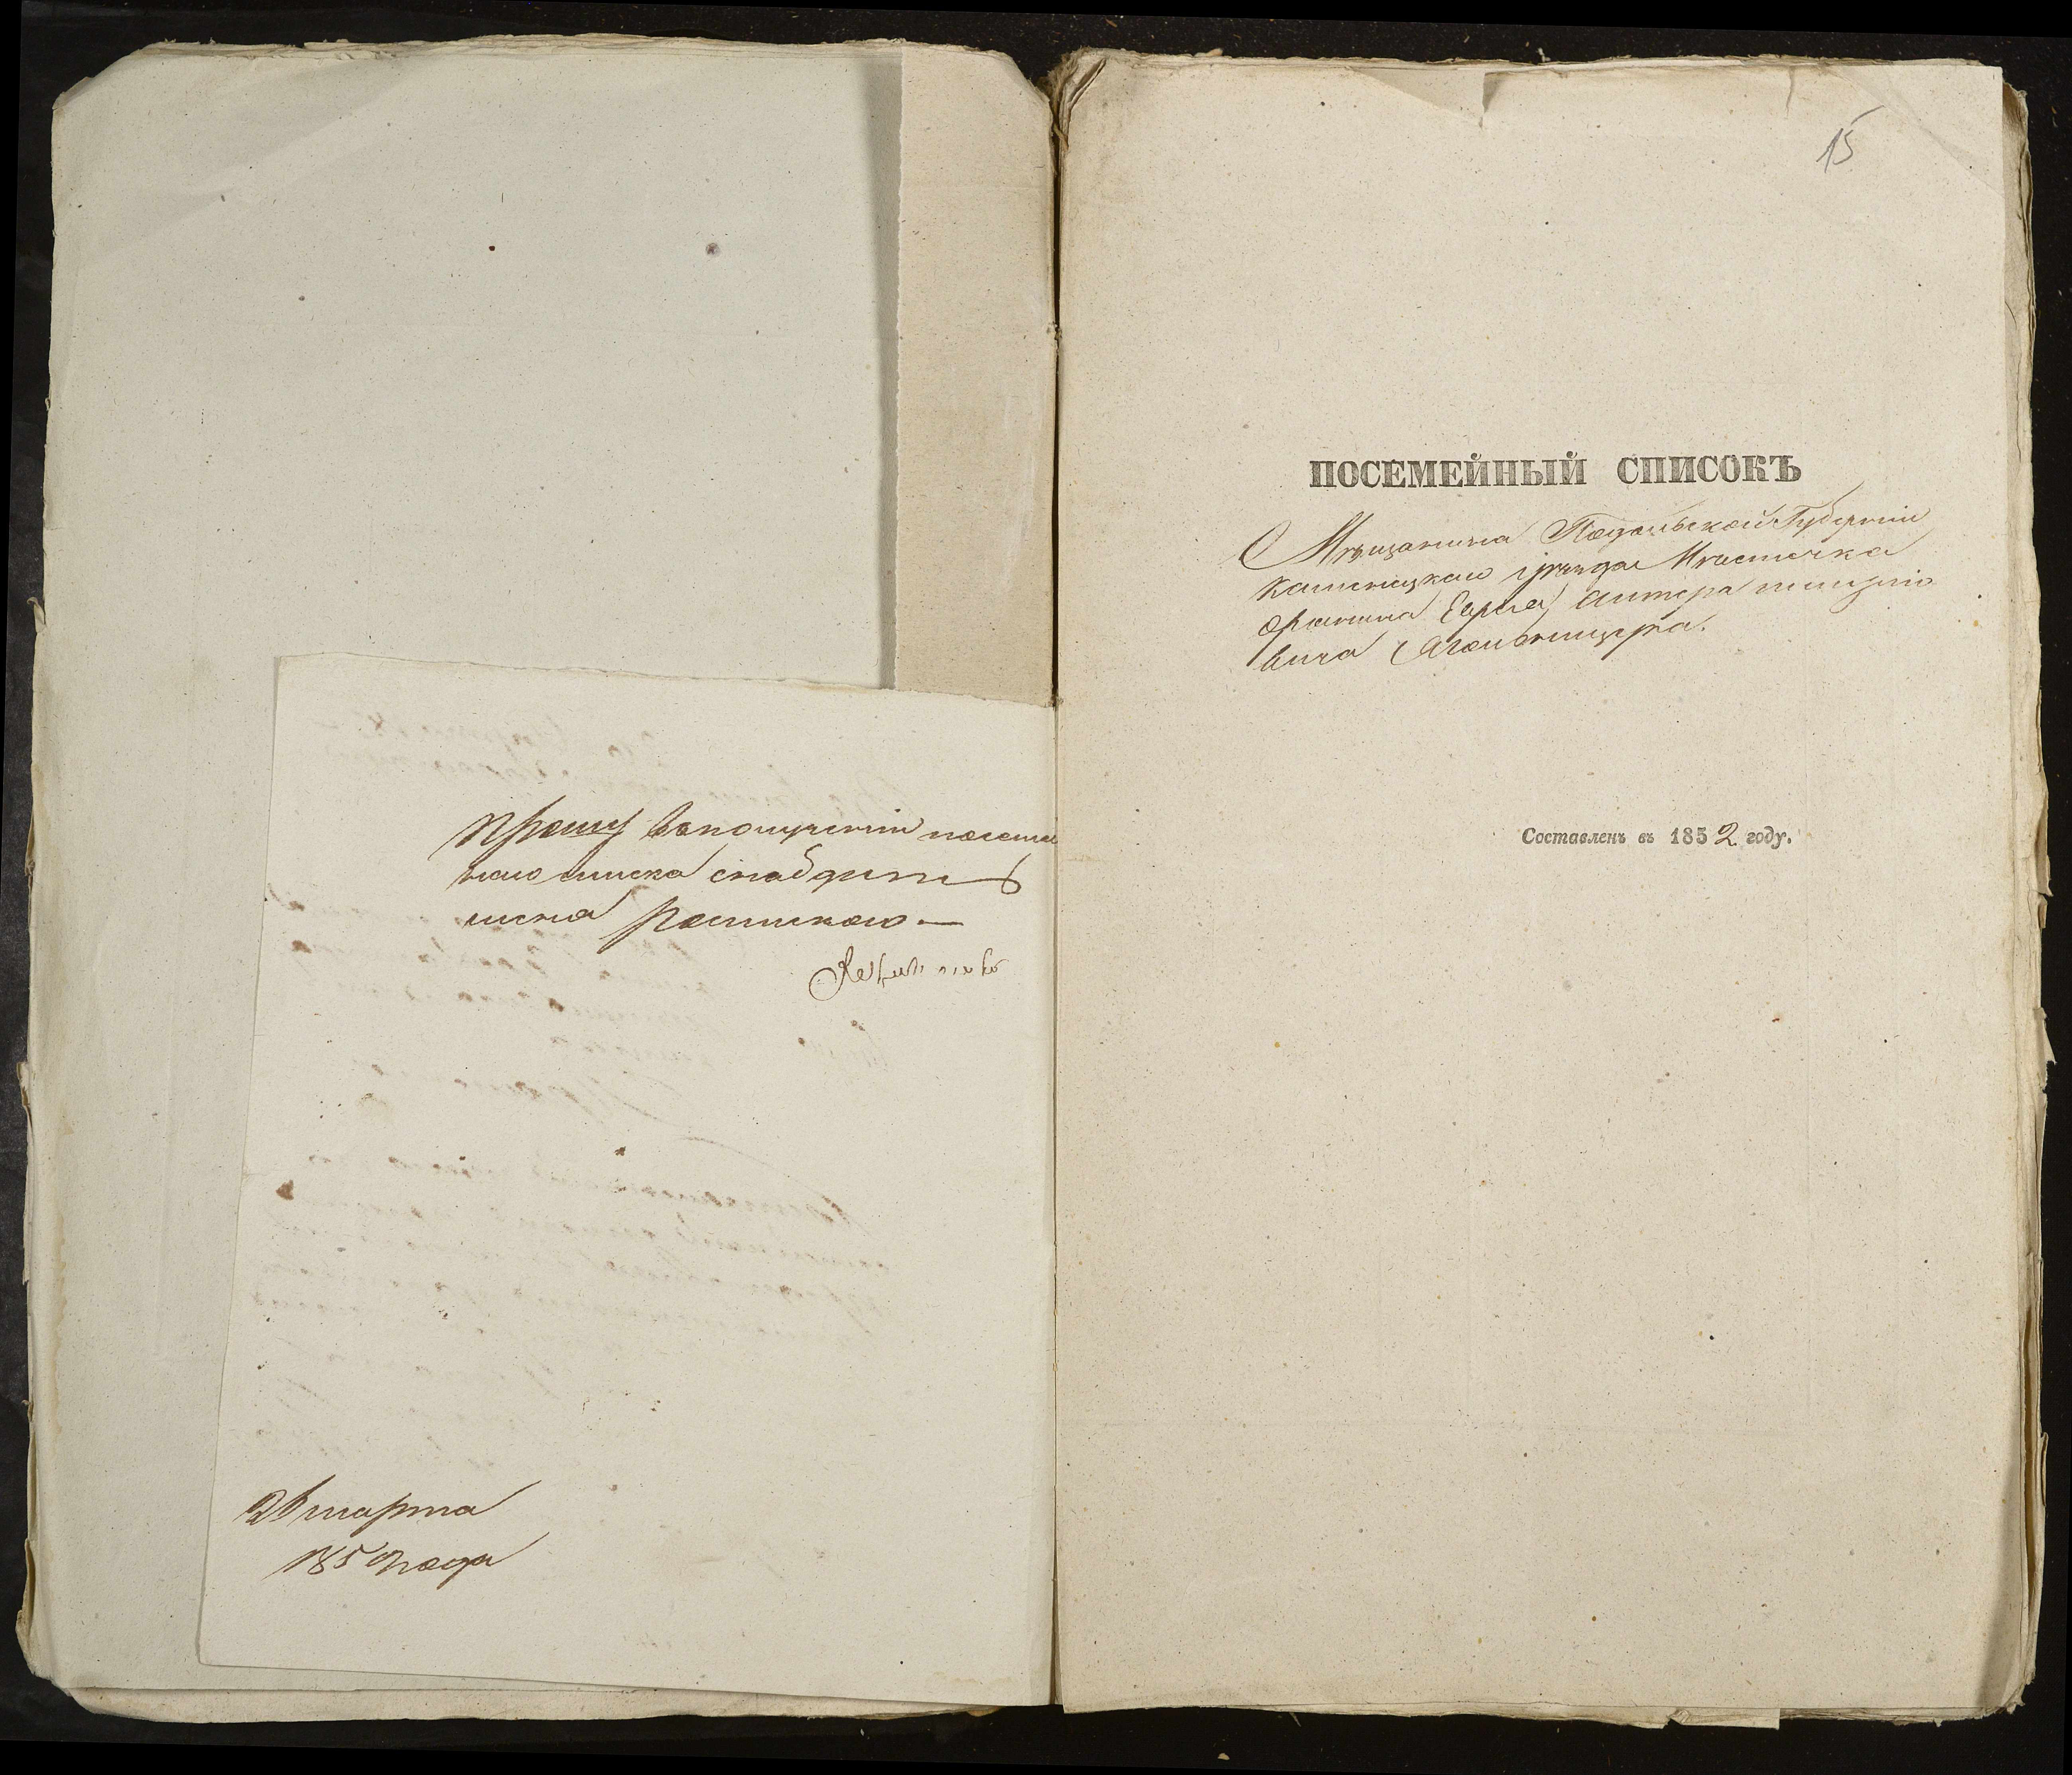 Прошу вполученіи посемей
наго списка снабдить
меня роспискою —
26 марта
185 года
15
ПОСЕМЕЙНЫЙ СПИСОКЪ
Мѣщанина Подольской Губерніи
Каменецкаго уѣзда Мѣстечка
Орынина Еврея
вича
Составленъ въ 1852 году.